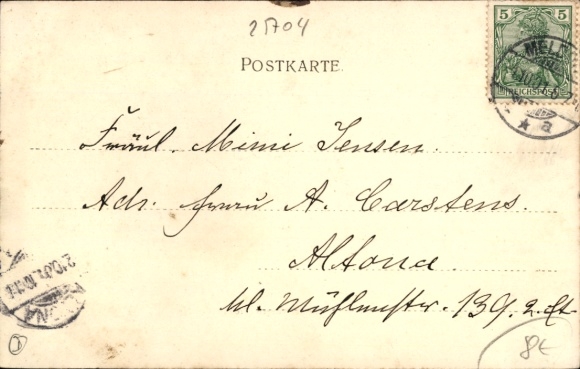 21704
POSTKARTE.
5 5
REICHSPOST
MEL
* a
Fräul. Mimi Jensen.
Adr. Frau A. Carstens.
Altona
kl. Mühlenstr. 139. 2. Et
8€